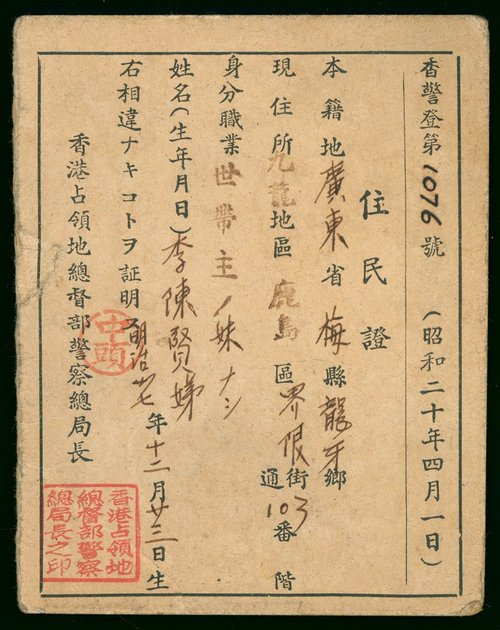 香警登第1076號 (昭和二十年四月一日)
住民證
本籍地廣東省梅縣龍牙鄉
現住所九龍地區鹿島區界限街通103番階
身分職業世帶主ノ妹ナシ
姓名(生年月日)李陳賢娣
明治卅七年十二月廿三日生
右相違ナキコトヲ証明ス
香港占領地總督部警察總局長
中頭
香港占領地
總督部警察
總局長之印